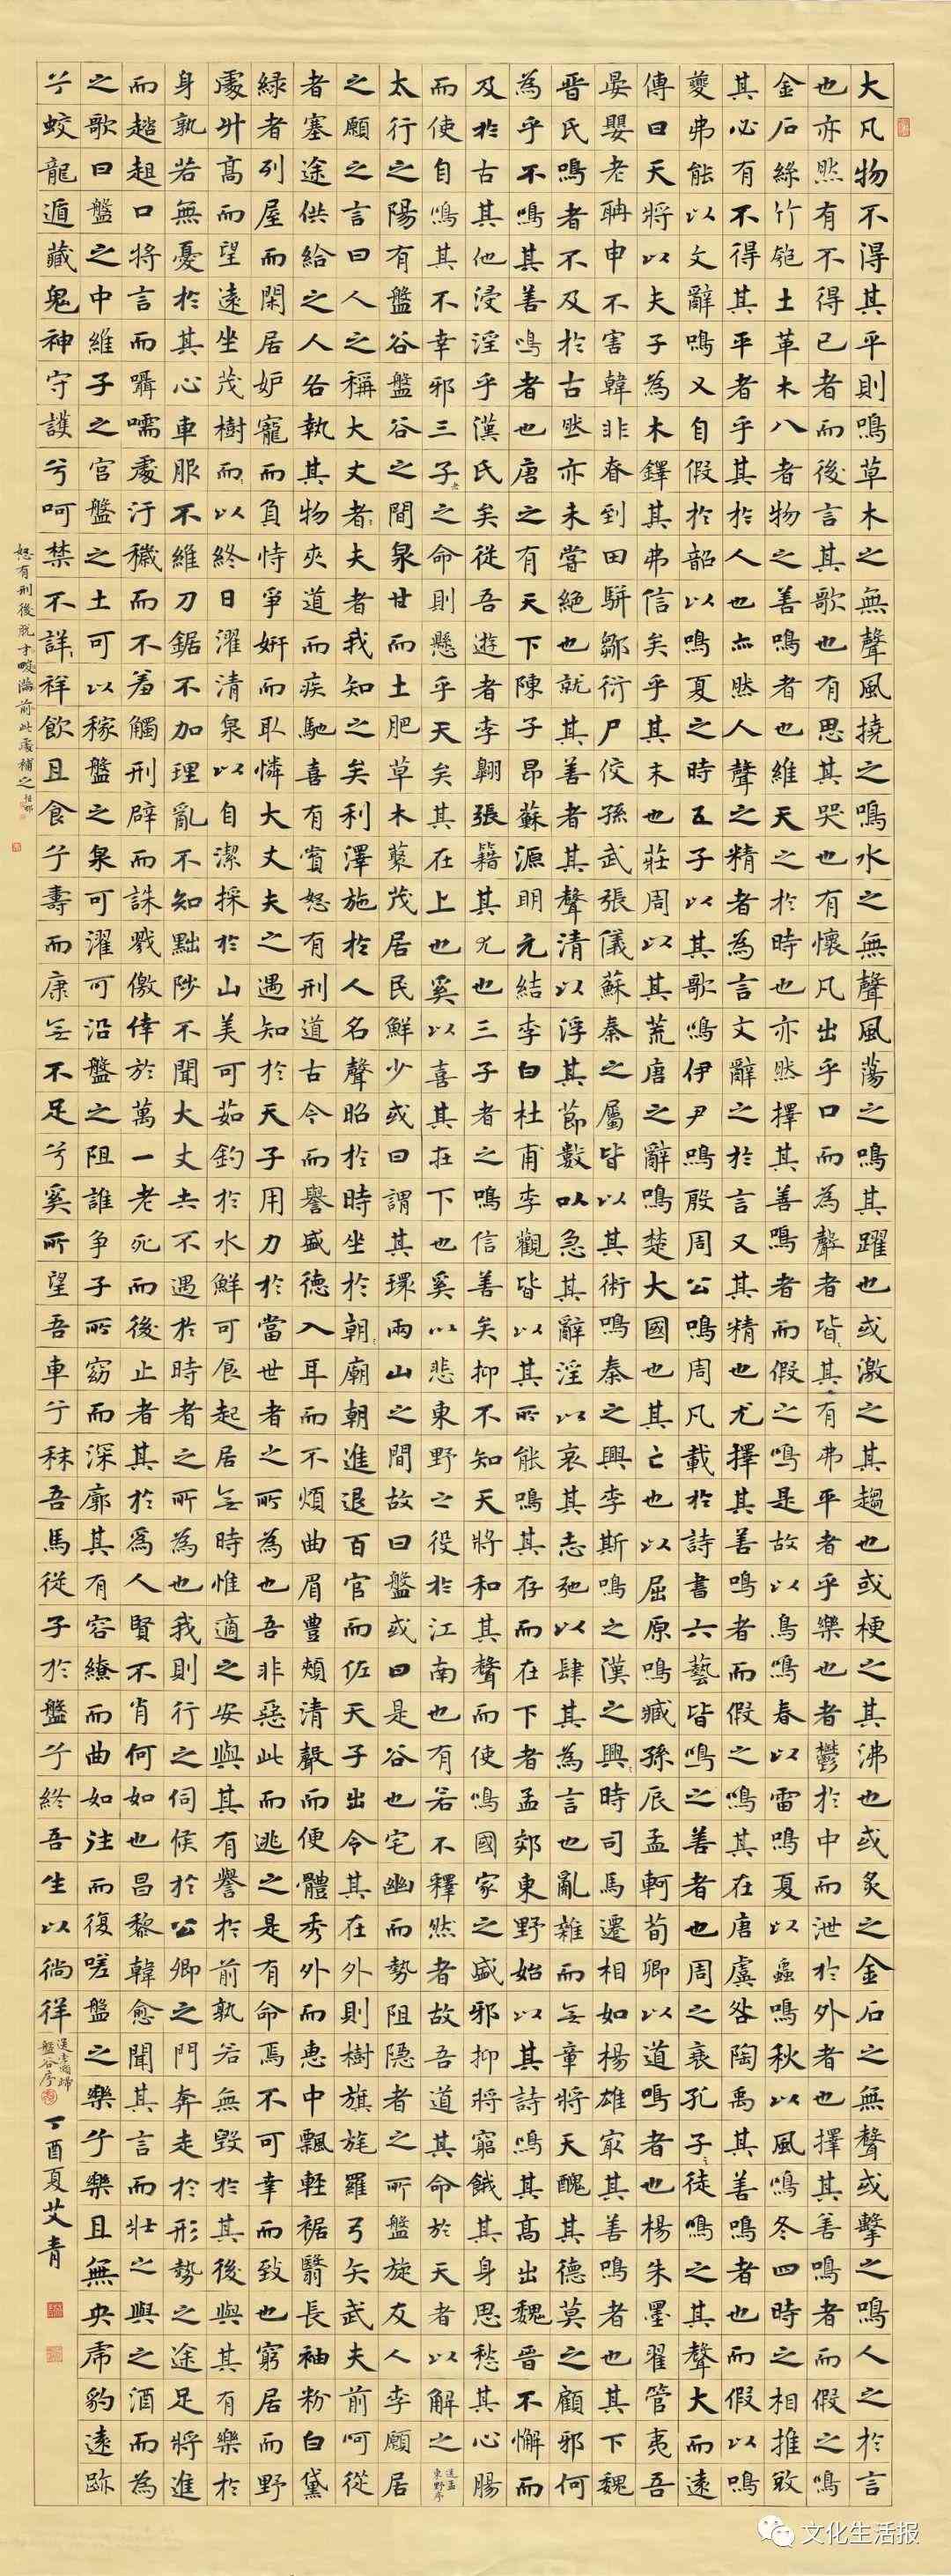 大凡物不得其平則鳴草木之無聲風撓之鳴水之無聲風蕩之鳴其躍也或激之其趨也或梗之其沸也或炙之金石之無聲或擊之鳴人之於言
也亦然有不得已者而後言其歌也有思其哭也有懷凡出乎口而為聲者皆其有弗平者乎樂也者鬱於中而泄於外者也擇其善鳴者而假之鳴
金石絲竹匏土革木八者物之善鳴者也維天之於時也亦然擇其善鳴者而假之鳴是故以鳥鳴春以雷鳴夏以蟲鳴秋以風鳴冬四時之相推敚
其必有不得其平者乎其於人也亦然人聲之精者為言文辭之於言又其精也尤擇其善鳴者而假之鳴其在唐虞咎陶禹其善鳴者也而假以鳴
夔弗能以文辭鳴又自假於韶以鳴夏之時五子以其歌鳴伊尹鳴殷周公鳴周凡載於詩書六藝皆鳴之善者也周之衰孔子之徒鳴之其聲大而遠
傳曰天將以夫子為木鐸其弗信矣乎其末也莊周以其荒唐之辭鳴楚大國也其亡也以屈原鳴臧孫辰孟軻荀卿以道鳴者也楊朱墨翟管夷吾
晏嬰老聃申不害韓非眘到田駢鄒衍尸佼孫武張儀蘇秦之屬皆以其術鳴秦之興李斯鳴之漢之興時司馬遷相如楊雄冣其善鳴者也其下魏
晉氏鳴者不及於古然亦未嘗絕也就其善者其聲清以浮其節數以急其辭淫以哀其志弛以肆其為言也亂雜而无章將天醜其德莫之顧邪何
為乎不鳴其善鳴者也唐之有天下陳子昂蘇源明元結李白杜甫李觀皆以其所能鳴其存而在下者孟郊東野始以其詩鳴其高出魏晉不懈而
及於古其他浸淫乎漢氏矣從吾遊者李翱張籍其尤也三子者之鳴信善矣抑不知天將和其聲而使鳴國家之盛邪抑將窮餓其身思愁其心腸
而使自鳴其不幸邪三子之命則懸乎天矣其在上也奚以喜其在下也奚以悲東野之役於江南也有若不釋然者故吾道其命於天者以解之送孟東野序
太行之陽有盤谷盤谷之間泉甘而土肥草木藂茂居民鮮少或曰謂其環兩山之間故曰盤或曰是谷也宅幽而勢阻隱者之所盤旋友人李願居
之願之言曰人之稱大丈者夫者我知之矣利澤施於人名聲昭於時坐於朝廟朝進退百官而佐天子出令其在外則樹旗旄羅弓矢武夫前呵從
者塞途供給之人各執其物夾道而疾馳喜有賞怒有刑道古今而譽盛德入耳而不煩曲眉豐頰清聲而便體秀外而惠中飄輕裾翳長袖粉白黛
緑者列屋而閑居妒寵而負恃爭妍而取憐大丈夫之遇知於天子用力於當世者之所為也吾非惡此而逃之是有命焉不可幸而致也窮居而野
處升高而望遠坐茂樹而以終日濯清泉以自潔採於山美可茹釣於水鮮可食起居无時惟適之安與其有譽於前孰若無毀於其後與其有樂於
身孰若無憂於其心車服不維刀鋸不加理亂不知黜陟不聞大丈夫不遇於時者之所為也我則行之伺候於公卿之門奔走於形勢之途足將進
而趦趄口將言而囁嚅處汙穢而不羞觸刑辟而誅戮僥倖於萬一老死而後止者其於為人賢不肖何如也昌黎韓愈聞其言而壯之與之酒而為
之歌曰盤之中維子之宮盤之土可以稼盤之泉可濯可沿盤之阻誰爭子所窈而深廓其有容繚而曲如往而復嗟盤之樂兮樂且無央虎豹遠跡
兮蛟龍遁藏鬼神守護兮呵禁不詳祥飲且食兮壽而康无不足兮奚所望吾車兮秣吾馬從子於盤兮終吾生以徜徉送李願歸盤谷序丁酉夏艾青
怒有刑後脫才畯滿前此處補之
文化生活报